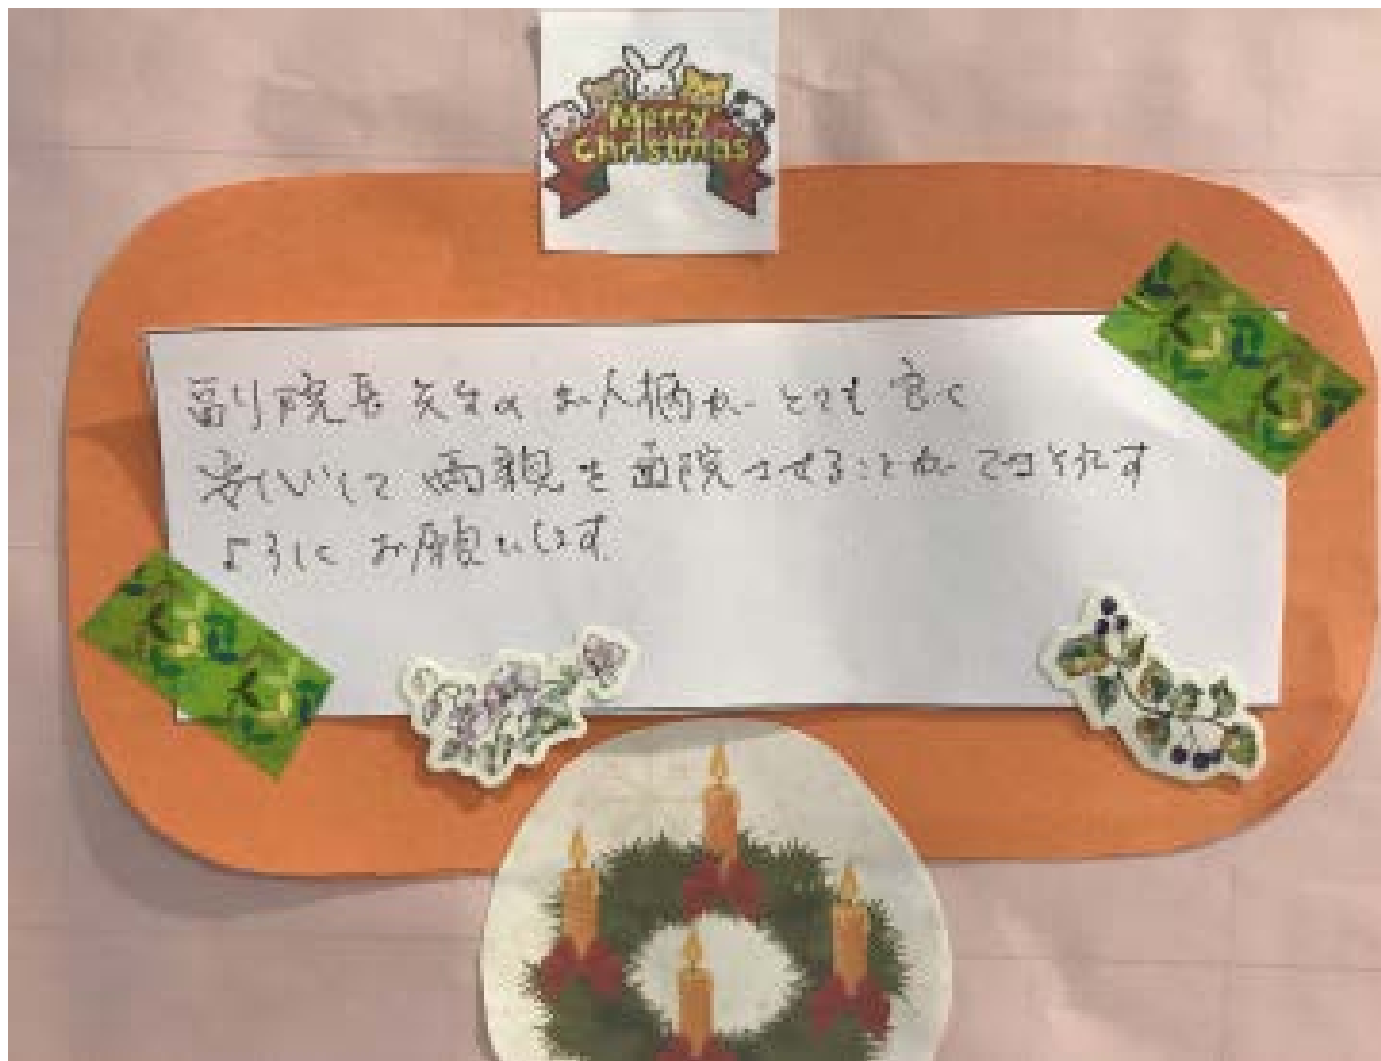 Merry
Christmas
副院長先生のお人柄がとても良く
安心して両親を させることが
ようにお願いします